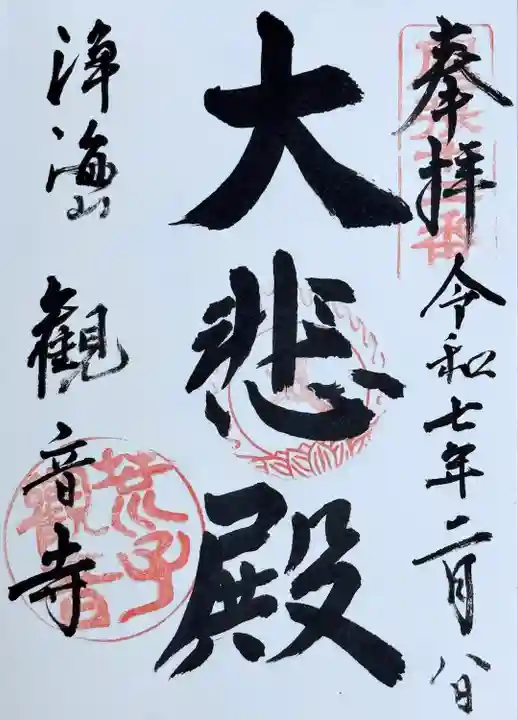 奉拝
令和七年二月八日
大悲殿
浄海山
観音寺
荒子
観音